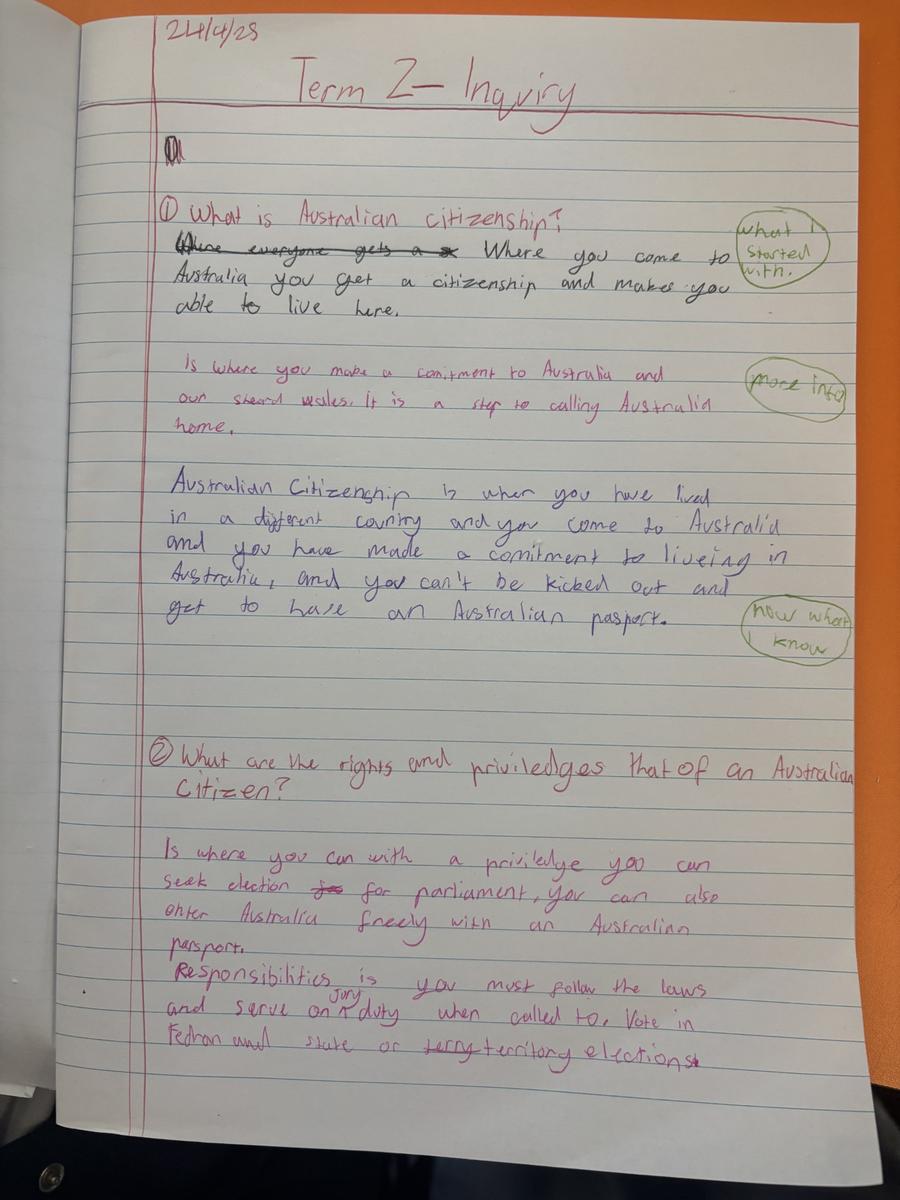 24/4/25
Term 2- Inquiry
① What is Australian citizenship?
Where everyone gets a Where you come to
what I
started
with.
Australia you get a citizenship and makes you
able to live here.
Is where you make a comitment to Australia and
more info
our sheard vales. It is a step to calling Australia
home.
Australian Citizenship is when you have lived
in a different country and you come to Australia
and you have made a comitment to liveing in
Australia, and you can't be kicked out and
get to have an Australian pasport.
now what
I know
② What are the rights and priviledges that of an Australian
Citizen?
Is where you can with a priviledge you can
seek election for parliament, you can also
enter Australia freely with an Australian
pasport.
Responsibilities is you must follow the laws
and serve on jury duty when called to. Vote in
and state or terry territory elections